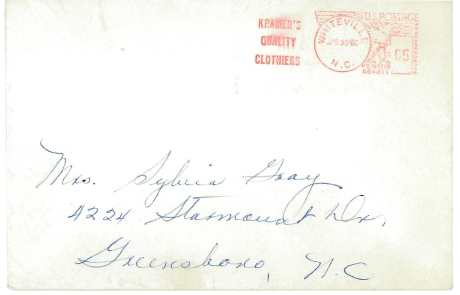 KRAMER'S
QUALITY
CLOTHIERS
WHITEVILLE
N.C.
U.S. POSTAGE
05
Mrs. Sylvia Gray
4224 Starmount Dr.
Greensboro, N.C